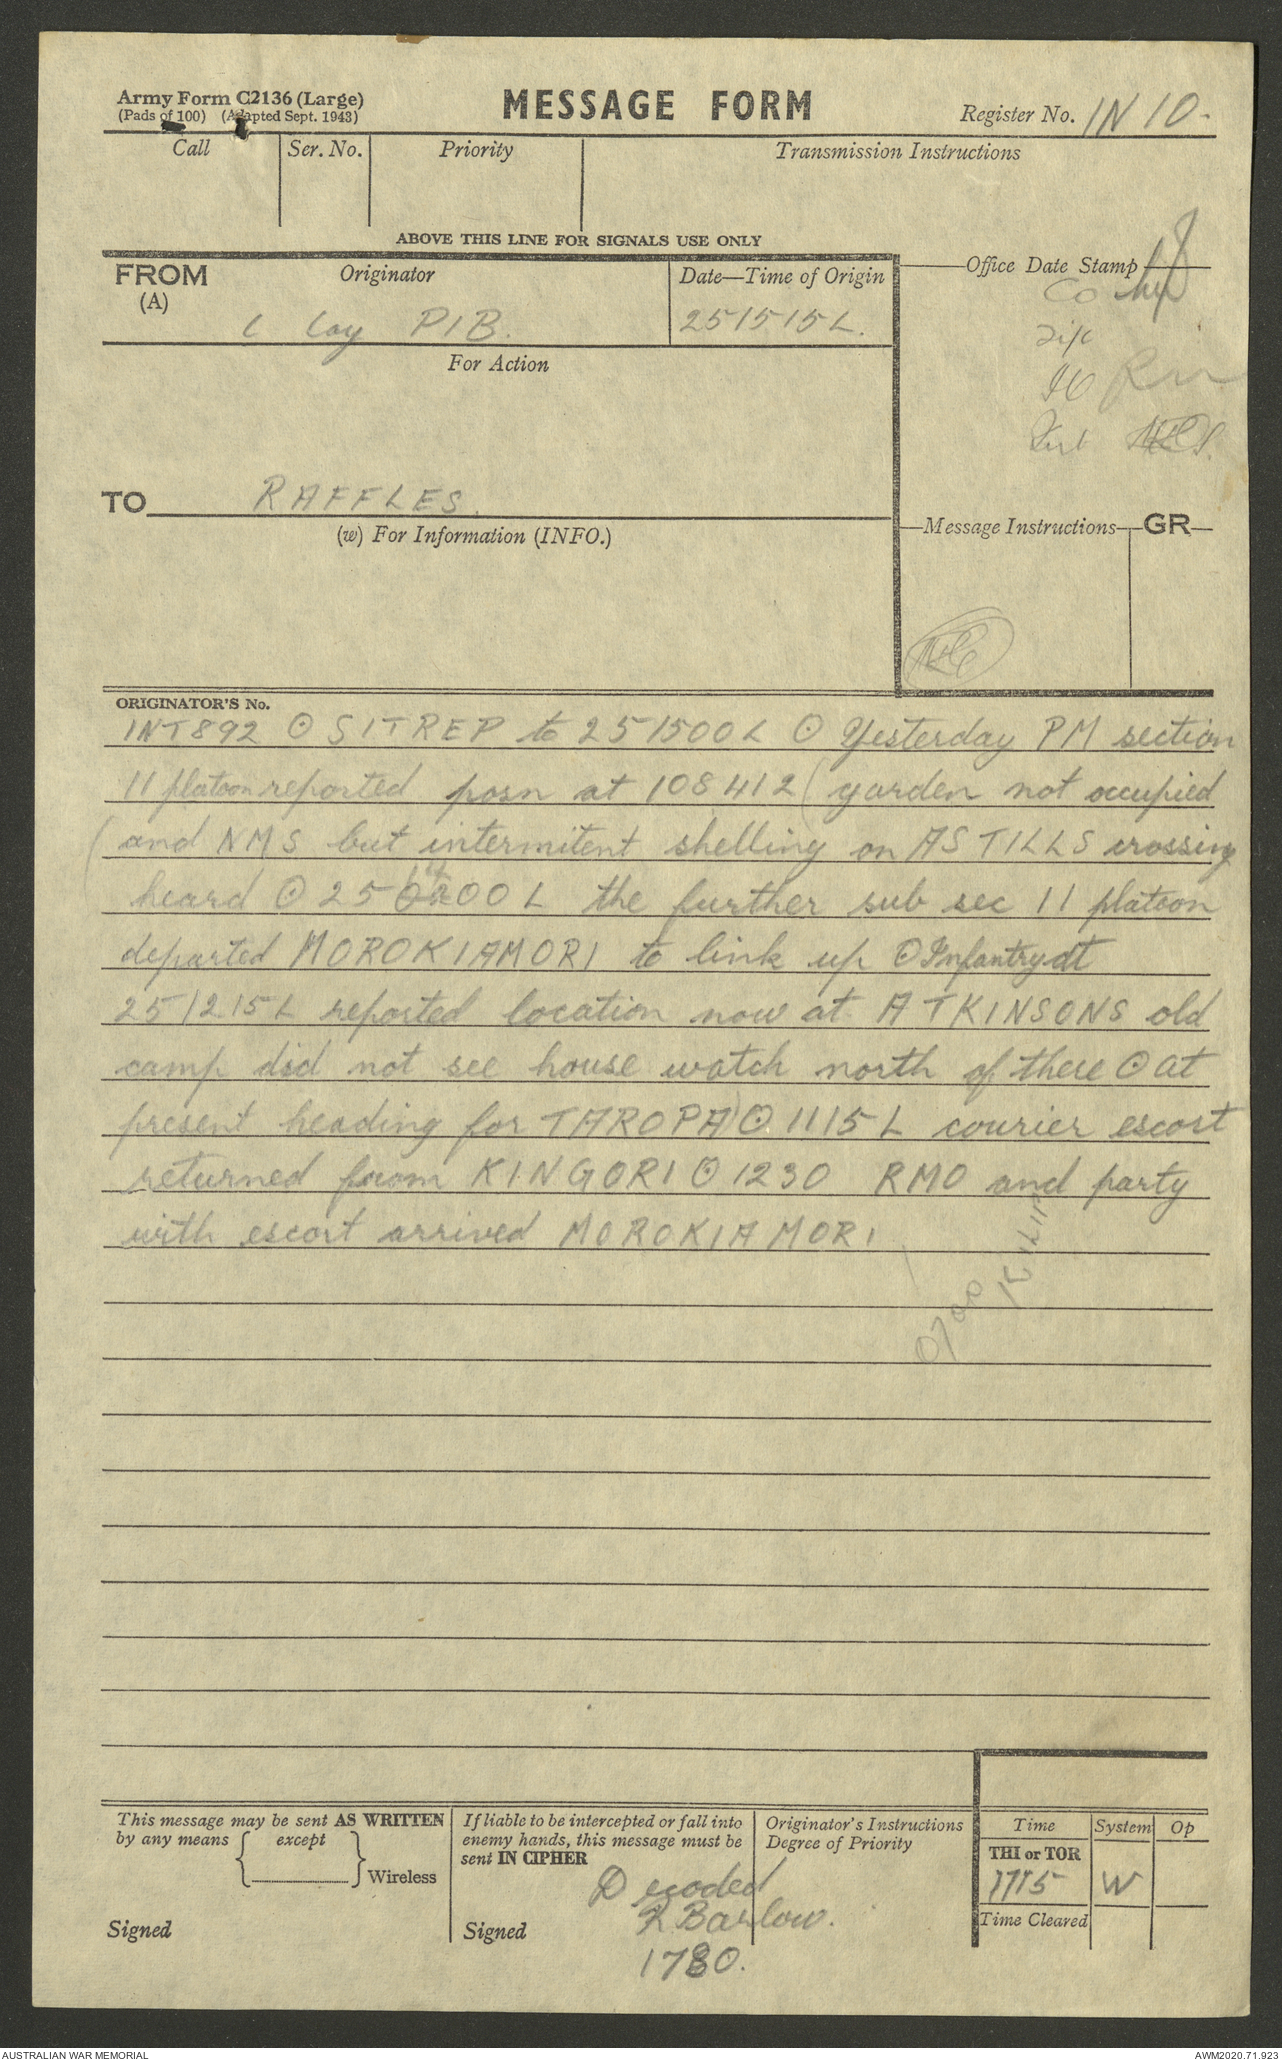 Army Form C2136 (Large)
(Pads of 100) (Adapted Sept. 1943)
MESSAGE FORM
Register No. IN 10.
Call
Ser. No.
Priority
Transmission Instructions
ABOVE THIS LINE FOR SIGNALS USE ONLY
FROM
(A)
Originator
C Coy PIB.
Date—Time of Origin
251515L.
Office Date Stamp
CO
2i/c
IO
For Action
TO RAFFLES.
(w) For Information (INFO.)
Message Instructions
GR
ORIGINATOR'S No.
INT892 ⊙ SITREP to 251500L ⊙ Yesterday PM section
11 platoon reported posn at 108412 (garden not occupied
(and NMS but intermitent shelling on ASTILLS crossing
heard ⊙ 25 00L the further sub sec 11 platoon
departed MOROKIAMORI to link up ⊙ Infantry dt
251215L reported location now at ATKINSONS old
camp did not see house watch north of there ⊙ at
present heading for TAROPA) ⊙ 1115L courier escort
returned from KINGORI ⊙ 1230 RMO and party
with escort arrived MOROKIAMORI
0700
This message may be sent AS WRITTEN
by any means { except }
Wireless
Signed
If liable to be intercepted or fall into
enemy hands, this message must be
sent IN CIPHER
Decoded
R Barlow.
Signed
1730.
Originator's Instructions
Degree of Priority
Time
System
Op
THI or TOR
1715
W
Time Cleared
AUSTRALIAN WAR MEMORIAL
AWM2020.71.923